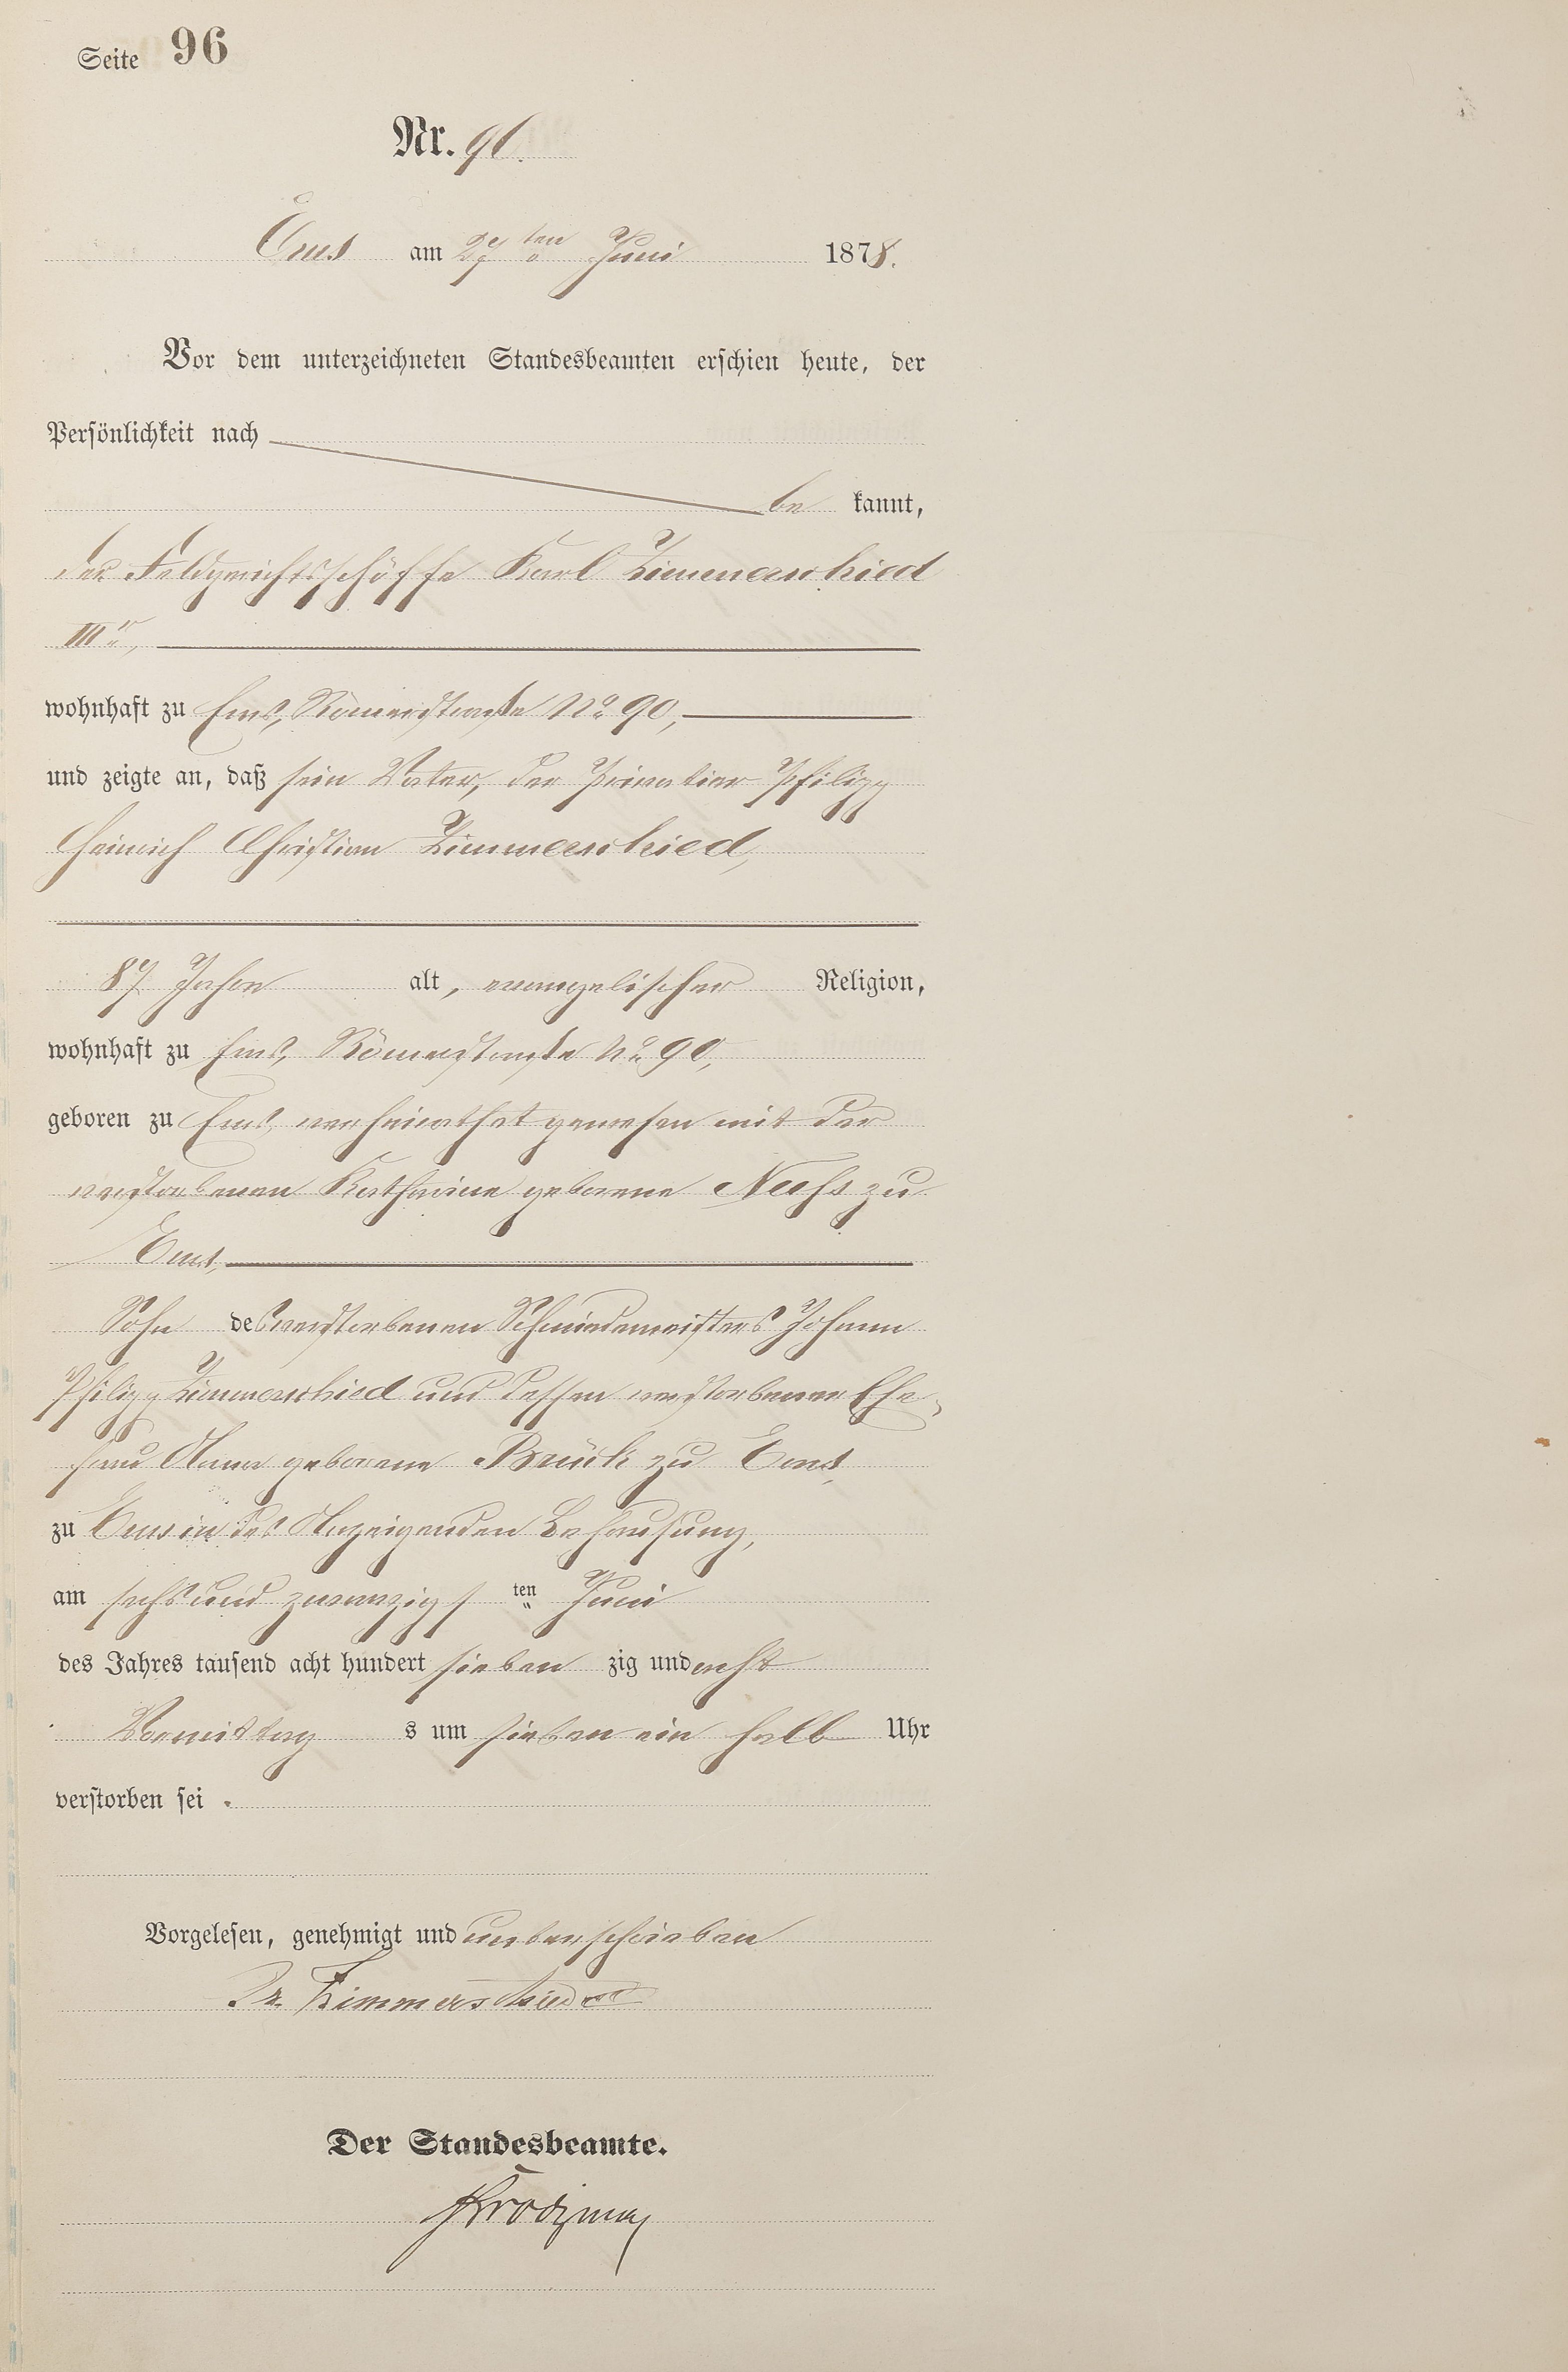 Seite 96
Nr. 96.
Ems am 27ten Juni 1878.
Vor dem unterzeichneten Standesbeamten erschien heute, der
Persönlichkeit nach
be kannt,
der Feldgerichtsschöffe Karl Zimmerschied
IIIr,
wohnhaft zu Ems, Römerstraße No 90,
und zeigte an, daß sein Vater, der Privatier Philipp
Heinrich Christian Zimmerschied,
87 Jahre alt, evangelischer Religion,
wohnhaft zu Ems, Römerstraße No 90,
geboren zu Ems, verheirathet gewesen mit der
verstorbenen Katharine geborene zu
Ems,
Sohn des verstorbenen Schmiedemeisters Johann
Philipp Zimmerschied und dessen verstorbener Ehe-
frau Anna geborene Brück zu Ems,
zu Ems in des Anzeigenden Behausung,
am sechs und zwanzigsten Juni
des Jahres tausend acht hundert sieben zig und acht
Vormittag s um sieben ein halb Uhr
verstorben sei.
Vorgelesen, genehmigt und unterschrieben
Zimmerschied
Der Standesbeamte.